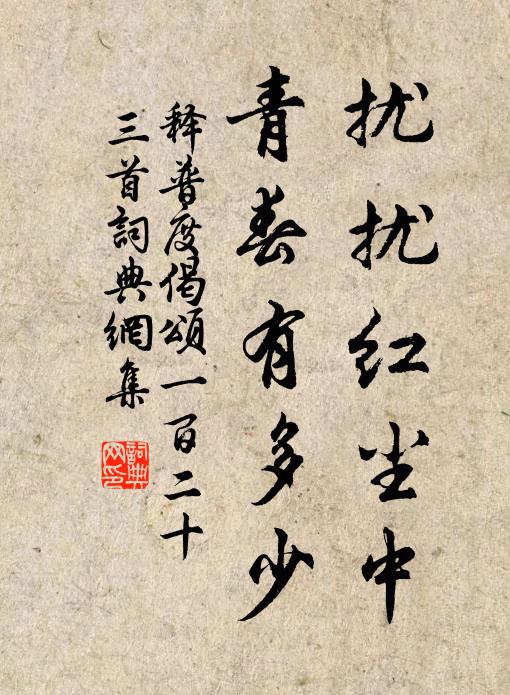 扰扰红尘中
青春有多少
释普度偈颂一百二十
三首詞典網集
詞典
网印